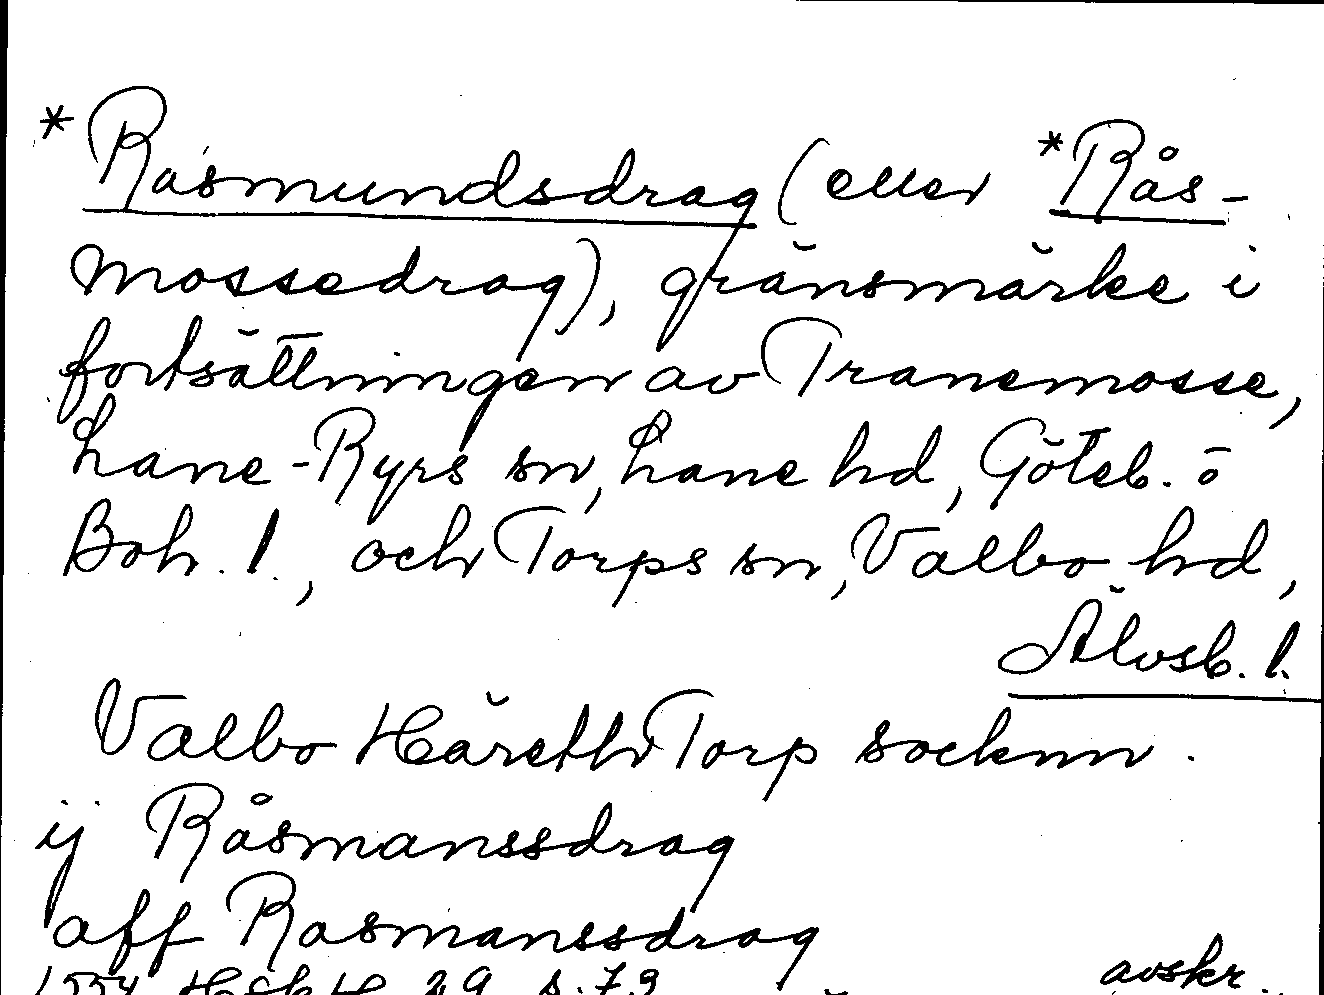 *Rasmundsdrag (eller *Rås-
mossedrag), gränsmärke i
fortsättningen av Tranemosse,
Lane-Ryrs sn, Lane hd, Göteb. o
Boh. l., och Torps sn, Valbo hd,
Älvsb. l.
Valbo Häreth Torp socknn.
ij Råsmanssdrag
aff Rasmanssdrag
1554 29 s. 79 avskr.